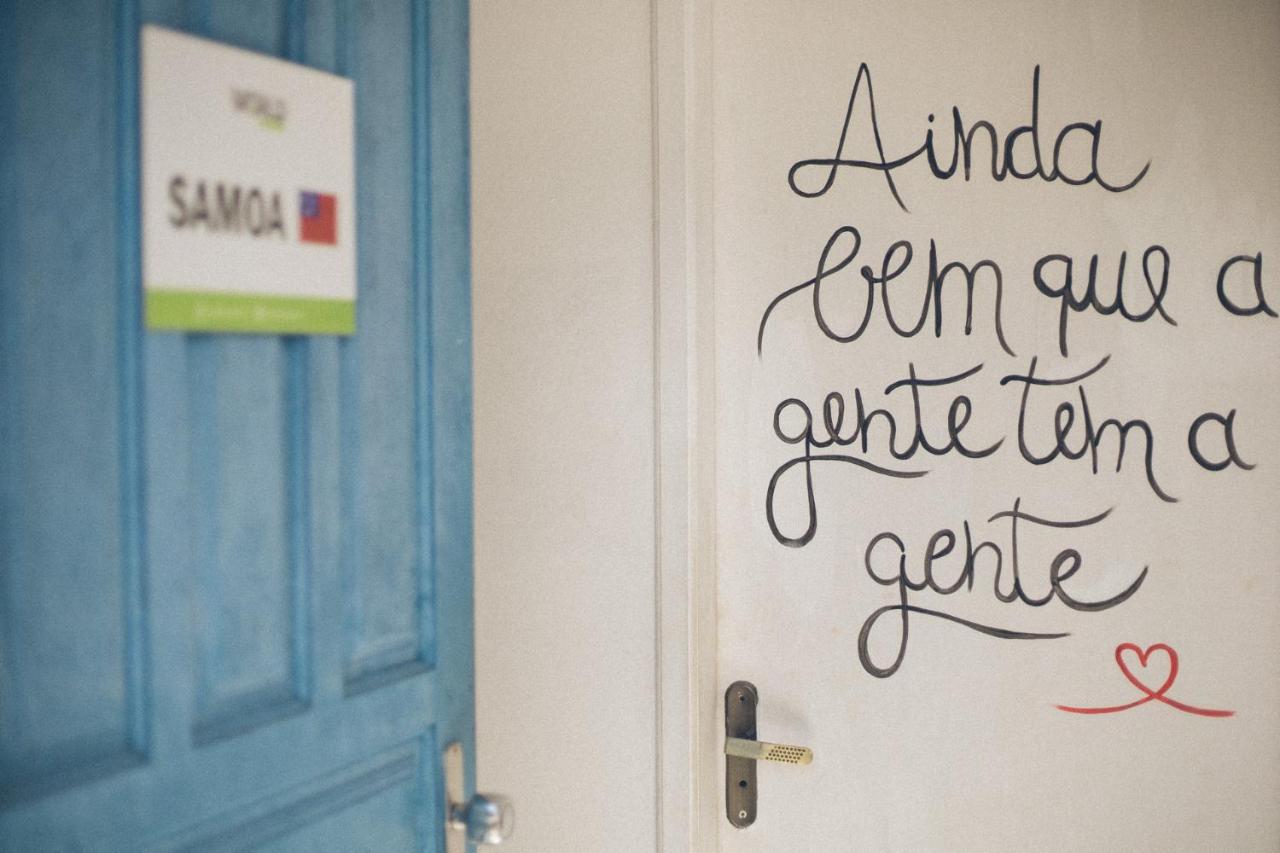 SAMOA
Ainda
bem que a
gente tem a
gente